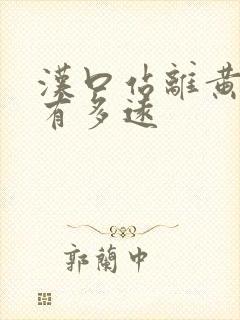 漢口佔離黃
有多遠
郭蘭中